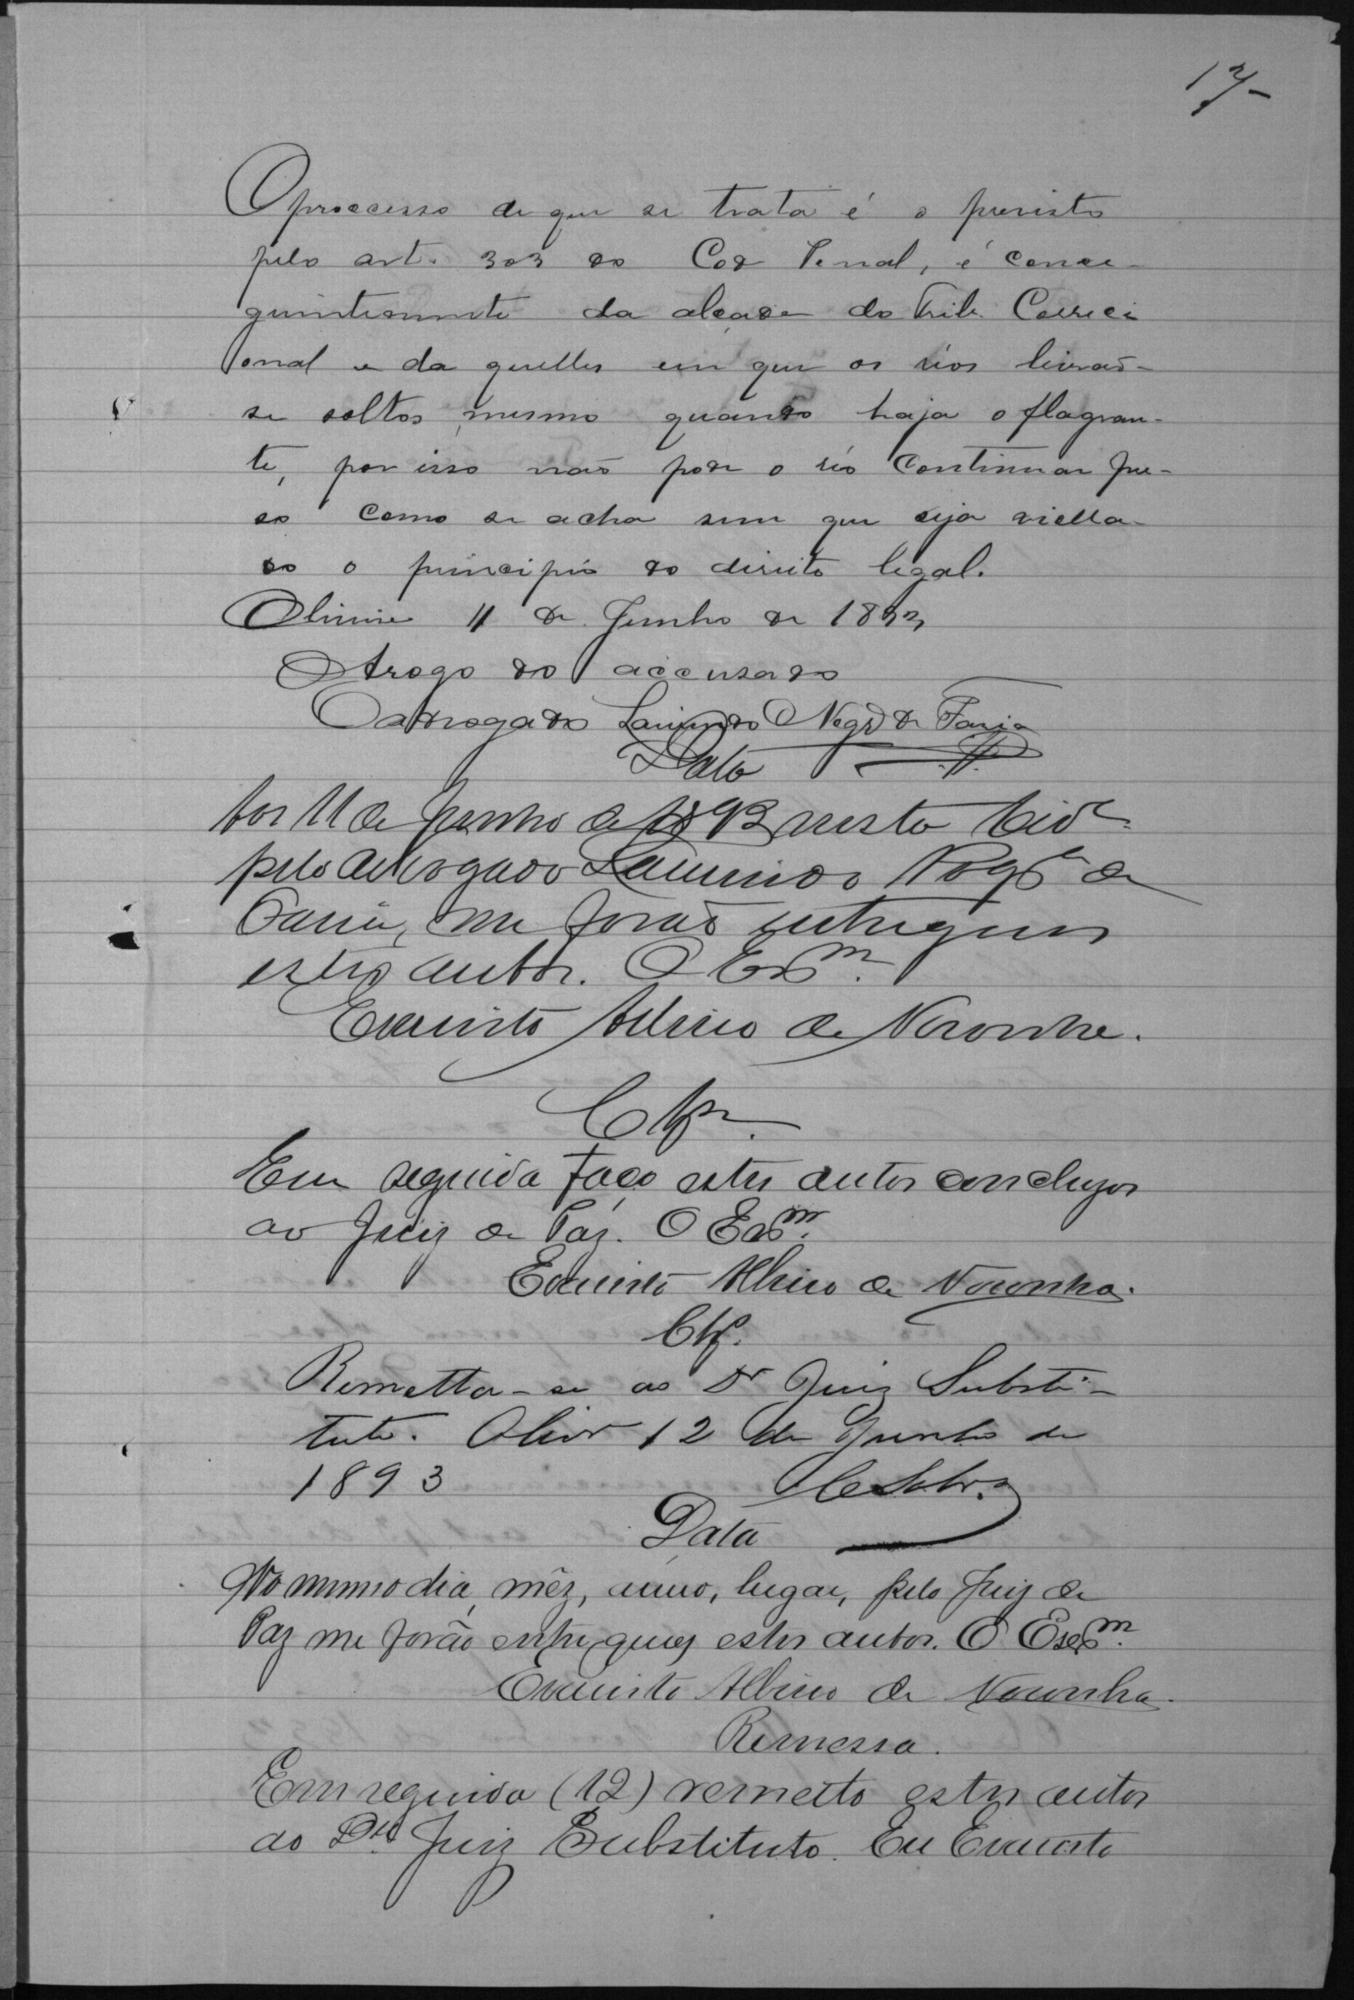 17-
O processo de que se trata é o previsto
pelo art. 303 do Cod Penal, é conse-
guintemente da alçada do Trib. Correci
onal e da quelles em que os réos livrão-
se soltos mesmo quando haja o flagran-
te, por isso não pode o réo continuar pre-
so como se acha sem que seja viola-
do o principio do direito legal.
11 de Junho de 1893
A rogo do accusado
O advogado Laurindo Nogr.ª de Faria
Data
Aos 11 de Junho de 1893 nesta Cid.e
pelo advogado Laurindo Nogr.ª de
Faria, me forão entregues
estes autos. O Esc.m
Evaristo Albino de Noronha.
Clz.
Em seguida faço estes autos conclusos
ao Juiz de Paz. O Esc.m
Evaristo Albino de Noronha.
Clz.
Remetta-se ao Dr Juiz Substi-
tuto. Oliv.ª 12 de Junho de
1893
Data
No mesmo dia, mêz, anno, lugar, pelo Juiz de
Paz me forão entregues estes autos. O Esc.m
Evaristo Albino de Noronha.
Remessa.
Em seguida (12) remetto estes autos
ao Dr. Juiz Substituto. Eu Evaristo